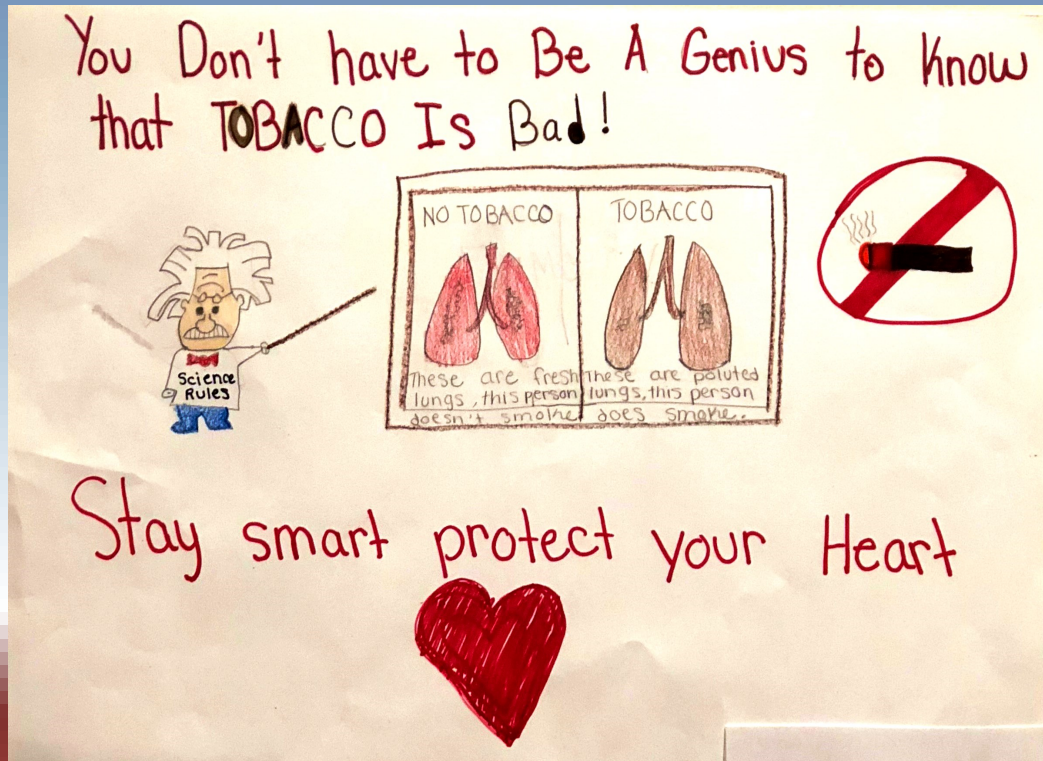 You Don't have to Be A Genius to Know
that TOBACCO Is Bad!
NO TOBACCO
These are fresh
lungs, this person
doesn't smoke
TOBACCO
These are poluted
lungs, this person
does smoke.
Science
Rules
Stay smart protect your Heart